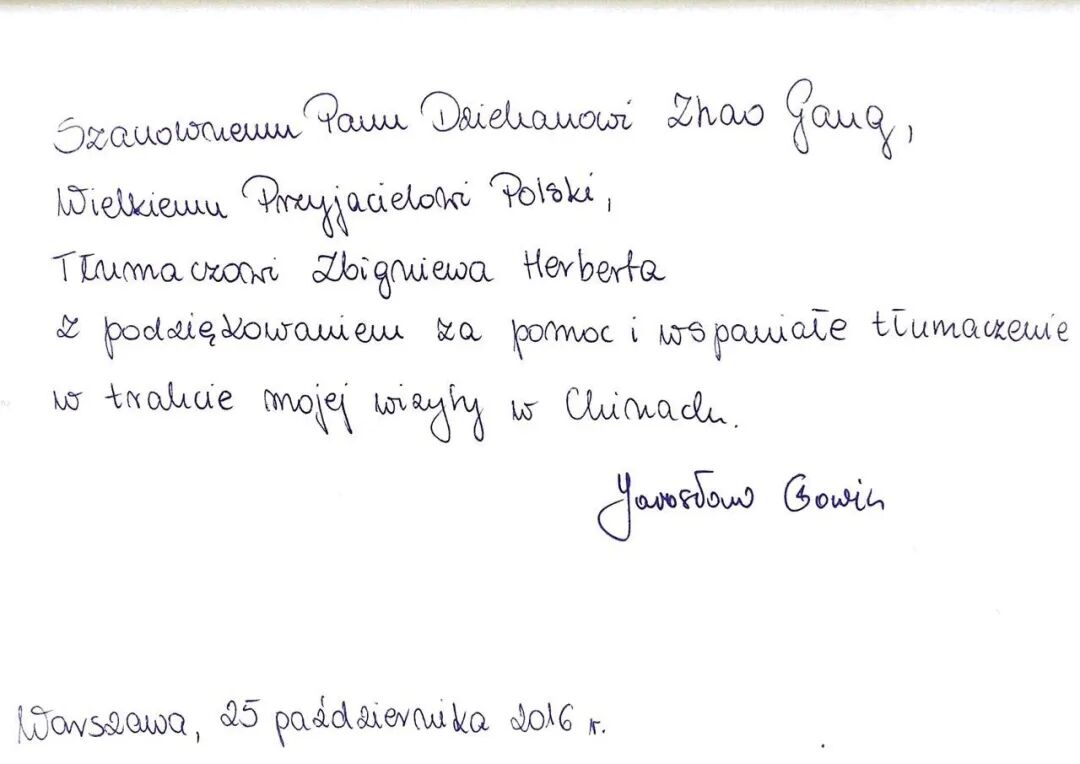 Szanownemu Panu Dziekanowi Zhao Gang,
Wielkiemu Przyjacielowi Polski,
Tłumaczowi Zbigniewa Herberta
z podziękowaniem za pomoc i wspaniałe tłumaczenie
w trakcie mojej wizyty w Chinach.
Jarosław Gowin
Warszawa, 25 października 2016 r.